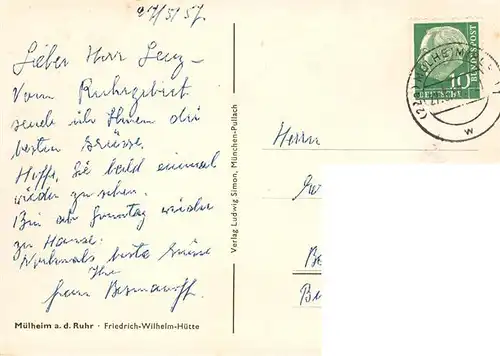 27/5/57.
Lieber Herr Lenz –
Vom Ruhrgebiet
sende ich Ihnen die
besten Grüsse.
Hoffe, Sie bald einmal
wieder zu sehen.
Bin ab Sonntag wieder
zu Hause.
Nochmals beste Grüsse
Ihr
Mülheim a. d. Ruhr · Friedrich-Wilhelm-Hütte
Verlag Ludwig Simon, München-Pullach
DEUTSCHE
BUNDESPOST
10
MÜLHEIM
w
Herrn